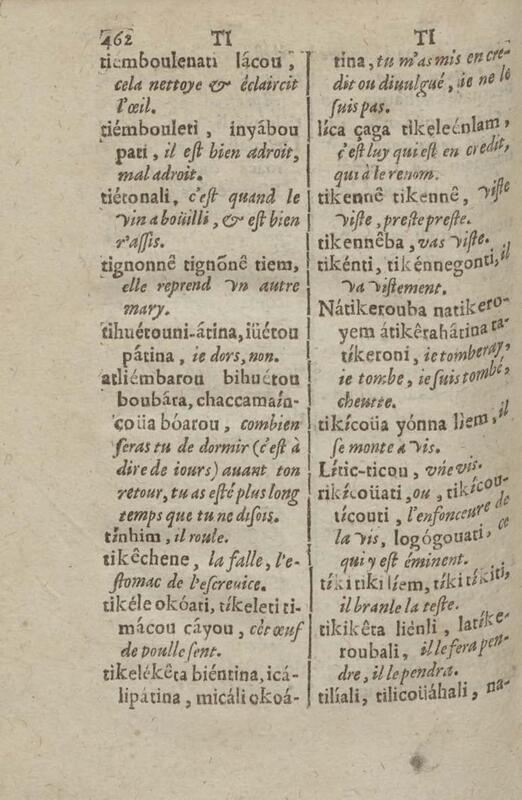 462 TI TI
tiemboulenati lácou,
cela nettoye & éclaircit
l'œil.
tiémbouleti, inyábou
pati, il est bien adroit,
mal adroit.
tiétonali, c'est quand le
vin a boüilli, & est bien
r'assis.
tignonnê tignõnê tiem,
elle reprend vn autre
mary.
tihuétouni-átina, iüétou
pâtina, ie dors, non.
atliémbarou bihuétou
boubâra, chaccamaín-
çoüa bóarou, combien
feras tu de dormir (c'est à
dire de iours) auant ton
retour, tu as esté plus long
temps que tu ne disois.
tínhim, il roule.
tikêchene, la falle, l'e-
stomac de l'escreuice.
tikéle okóati, tíkeleti ti-
mácou cáyou, cét œuf
de poulle sent.
tikelékêta biéntina, icá-
lipátina, micáli okoá-
tina, tu m'as mis en cre-
dit ou diuulgué, ie ne le
suis pas.
líca çaga tikeleénlam,
c'est luy qui est en credit,
qui à le renom.
tikennê tikennê, viste
viste, preste preste.
tikennêba, vas viste.
tikénti, tikénnegonti, il
va vistement.
Nátikerouba natikero-
yem átikêrahâtina ta-
tíkeroni, ie tomberay,
ie tombe, ie suis tombé,
cheutte.
tikícoüa yónna lìem, il
se monte a vis.
Lític-ticou, vne vis.
rikícoüati, ou, tikícou-
tícouti, l'enfonceure de
la vis, logógouati, ce
qui y est éminent.
tíki tiki líem, tíki tíkiti,
il branle la teste.
tikikêta liénli, latíke-
roubali, il le fera pen-
dre, il le pendra.
tilíali, tilicoüáhali, na-